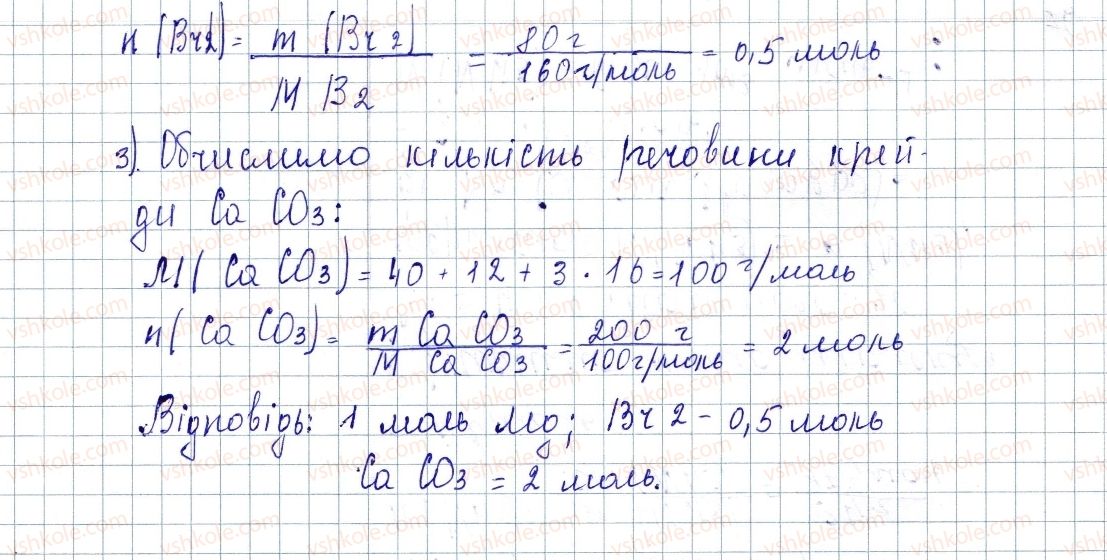 n (Br2) = m (Br2) / M Br2 = 80 г / 160 г/моль = 0,5 моль ;
3). Обчислимо кількість речовини крей-
ди Ca CO3:
M ( Ca CO3 ) = 40 + 12 + 3 · 16 = 100 г/моль
n ( Ca CO3) = m Ca CO3 / M Ca CO3 = 200 г / 100 г/моль = 2 моль
Відповідь: 1 моль Mg; Br 2 - 0,5 моль
Ca CO3 = 2 моль.